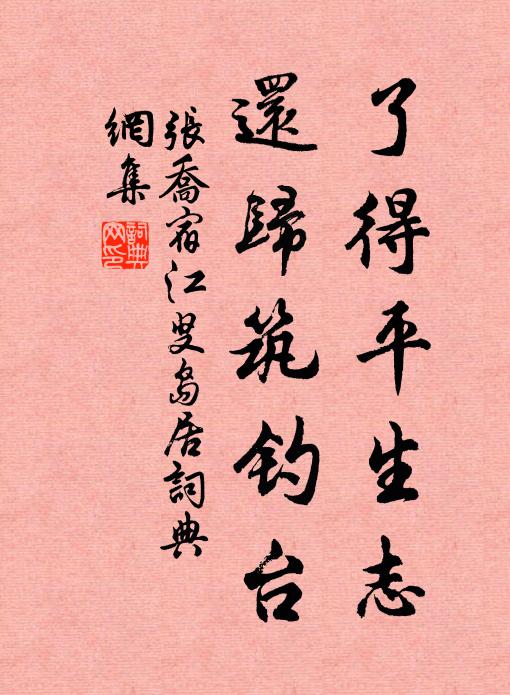 了得平生志
還歸筑钓台
張喬宿江叟島居詞典
網集
詞典
网印